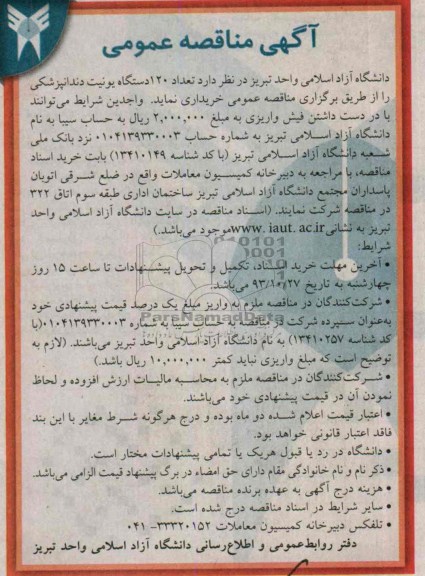 آگهی مناقصه عمومی
دانشگاه آزاد اسلامی واحد تبریز در نظر دارد تعداد ۱۲۰دستگاه یونیت دندانپزشکی
را از طریق برگزاری مناقصه عمومی خریداری نماید. واجدین شرایط می‌توانند
با در دست داشتن فیش واریزی به مبلغ ۲,۰۰۰,۰۰۰ ریال به حساب سیبا به نام
دانشگاه آزاد اسلامی تبریز به شماره حساب ۰۱۰۴۱۳۹۳۳۰۰۰۳ نزد بانک ملی
شعبه دانشگاه آزاد اسلامی تبریز (با کد شناسه ۱۳۴۱۰۱۴۹) بابت خرید اسناد
مناقصه، با مراجعه به دبیرخانه کمیسیون معاملات واقع در ضلع شرقی اتوبان
پاسداران مجتمع دانشگاه آزاد اسلامی تبریز ساختمان اداری طبقه سوم اتاق ۳۲۲
در مناقصه شرکت نمایند. (اسناد مناقصه در سایت دانشگاه آزاد اسلامی واحد
تبریز به نشانی www.iaut.ac.ir موجود می‌باشد.)
شرایط:
• آخرین مهلت خرید اسناد، تکمیل و تحویل پیشنهادات تا ساعت ۱۵ روز
چهارشنبه به تاریخ ۹۳/۱۰/۲۷ می‌باشد.
• شرکت‌کنندگان در مناقصه ملزم به واریز مبلغ یک درصد قیمت پیشنهادی خود
به‌عنوان سپرده شرکت در مناقصه به حساب سیبا به شماره ۰۱۰۴۱۳۹۳۳۰۰۰۳(با
کد شناسه ۱۳۴۱۰۲۵۷) به نام دانشگاه آزاد اسلامی واحد تبریز می‌باشند. (لازم به
توضیح است که مبلغ واریزی نباید کمتر ۱۰,۰۰۰,۰۰۰ ریال باشد.)
• شرکت‌کنندگان در مناقصه ملزم به محاسبه مالیات ارزش افزوده و لحاظ
نمودن آن در قیمت پیشنهادی خود می‌باشند.
• اعتبار قیمت اعلام شده دو ماه بوده و درج هرگونه شرط مغایر با این بند
فاقد اعتبار قانونی خواهد بود.
• دانشگاه در رد یا قبول هریک یا تمامی پیشنهادات مختار است.
• ذکر نام و نام خانوادگی مقام دارای حق امضاء در برگ پیشنهاد قیمت الزامی می‌باشد.
• هزینه درج آگهی به عهده برنده مناقصه می‌باشد.
• سایر شرایط در اسناد مناقصه درج شده است.
• تلفکس دبیرخانه کمیسیون معاملات ۳۳۳۲۰۱۵۲- ۰۴۱
دفتر روابط‌عمومی و اطلاع‌رسانی دانشگاه آزاد اسلامی واحد تبریز
ParsNamadData